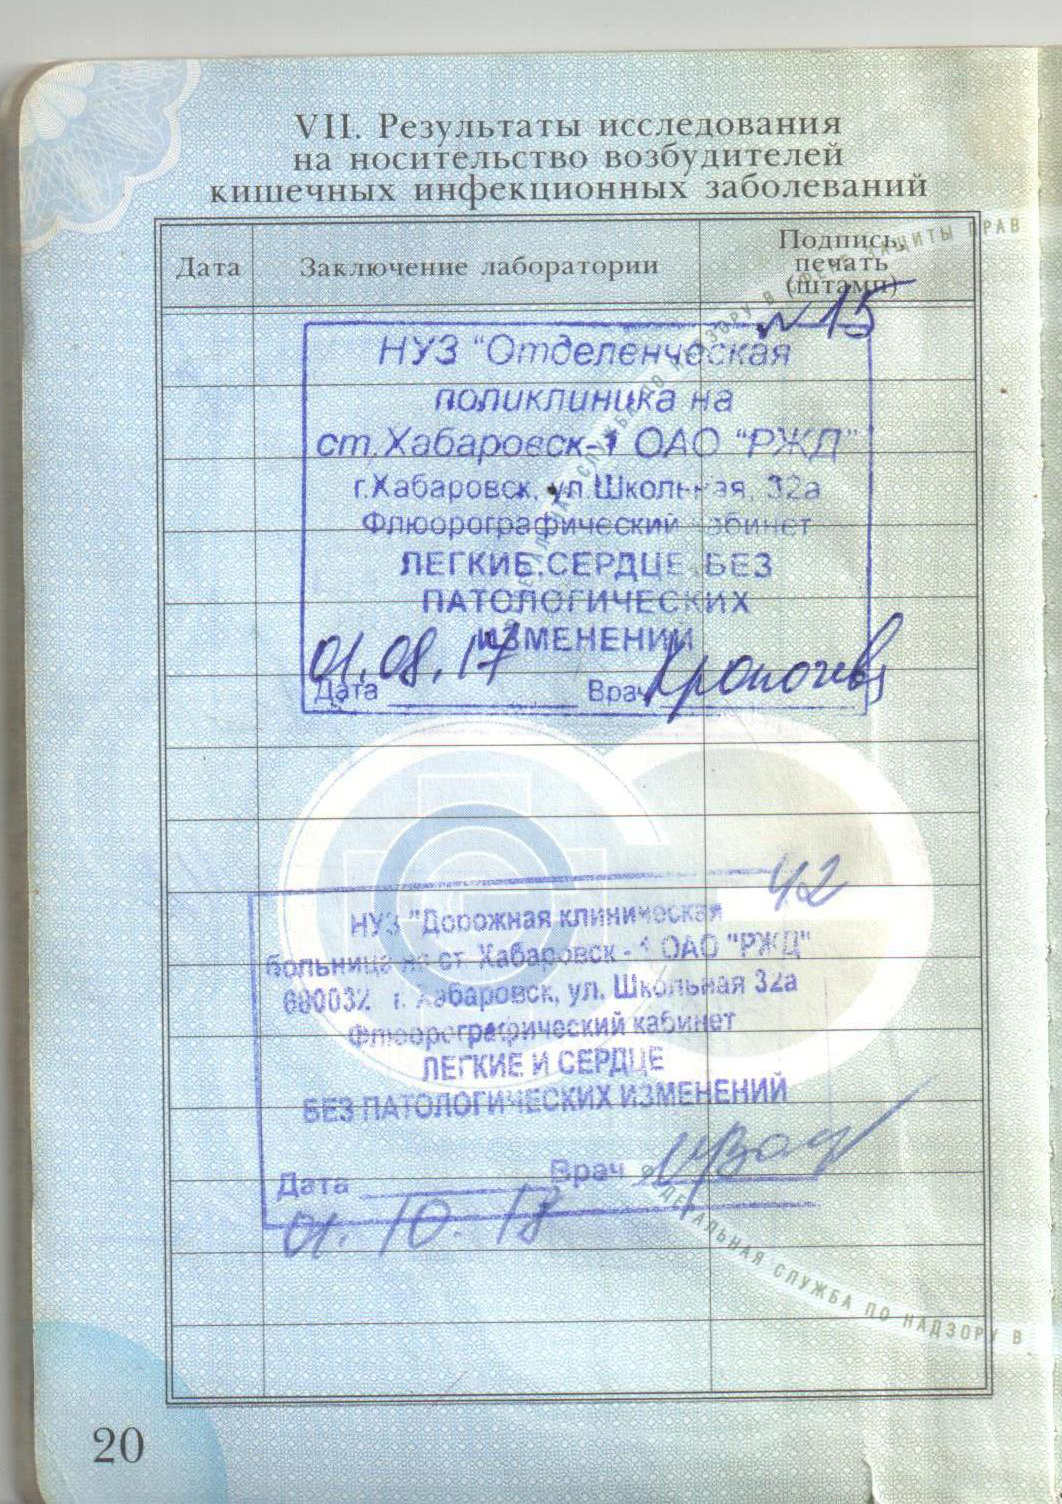 VII. Результаты исследования
на носительство возбудителей
кишечных инфекционных заболеваний
Дата
Заключение лаборатории
Подпись,
печать
(штамп)
№15
НУЗ "Отделенческая
поликлиника на
ст.Хабаровск-1 ОАО "РЖД"
г.Хабаровск, ул.Школьная, 32а
Флюорографический кабинет
ЛЕГКИЕ.СЕРДЦЕ БЕЗ
ПАТОЛОГИЧЕСКИХ
ИЗМЕНЕНИЙ
01.08.17
Дата Врач
42
НУЗ "Дорожная клиническая
больница на ст. Хабаровск - 1 ОАО "РЖД"
680032 г. Хабаровск, ул. Школьная 32а
Флюорографический кабинет
ЛЕГКИЕ И СЕРДЦЕ
БЕЗ ПАТОЛОГИЧЕСКИХ ИЗМЕНЕНИЙ
Дата Врач
01.10.18
ФЕДЕРАЛЬНАЯ СЛУЖБА ПО НАДЗОРУ В
20